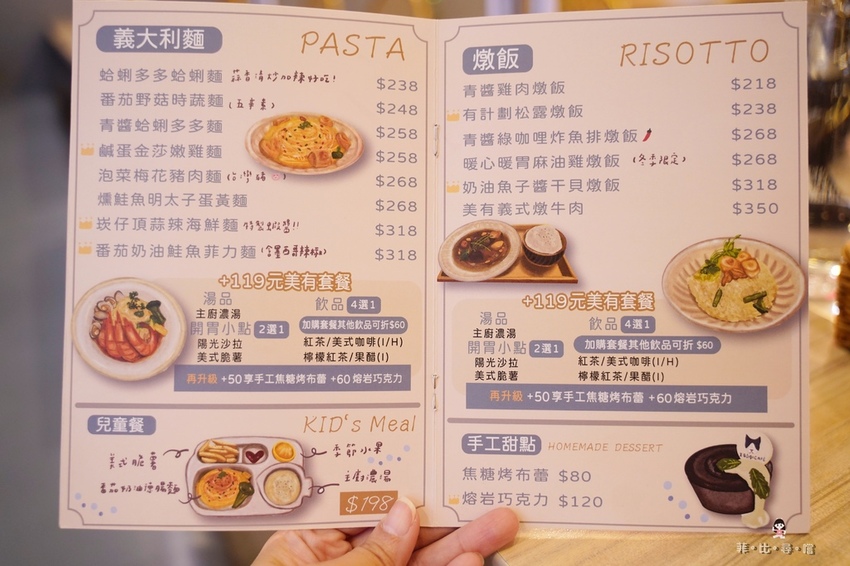 義大利麵 PASTA
蛤蜊多多蛤蜊麵 蒜香清炒加辣好吃! $238
番茄野菇時蔬麵 (五辛素) $248
青醬蛤蜊多多麵 $258
鹹蛋金莎嫩雞麵 $258
泡菜梅花豬肉麵 (台灣豬) $268
燻鮭魚明太子蛋黃麵 $268
崁仔頂蒜辣海鮮麵 特製蝦醬!! $318
番茄奶油鮭魚菲力麵 (含墨西哥辣椒) $318
+119元美有套餐
湯品
主廚濃湯
開胃小點 2選1
陽光沙拉
美式脆薯
飲品 4選1
加購套餐其他飲品可折$60
紅茶/美式咖啡(I/H)
檸檬紅茶/果醋(I)
再升級 +50享手工焦糖烤布蕾 +60熔岩巧克力
兒童餐 KID's Meal
美式脆薯
番茄奶油德腸麵
季節小果
主廚濃湯
$198
燉飯 RISOTTO
青醬雞肉燉飯 $218
有計劃松露燉飯 $238
青醬綠咖哩炸魚排燉飯 $268
暖心暖胃麻油雞燉飯 (冬季限定) $268
奶油魚子醬干貝燉飯 $318
美有義式燉牛肉 $350
+119元美有套餐
湯品
主廚濃湯
開胃小點 2選1
陽光沙拉
美式脆薯
飲品 4選1
加購套餐其他飲品可折 $60
紅茶/美式咖啡(I/H)
檸檬紅茶/果醋(I)
再升級 +50享手工焦糖烤布蕾 +60熔岩巧克力
手工甜點 HOMEMADE DESSERT
焦糖烤布蕾 $80
熔岩巧克力 $120
菲•比•尋•嚐